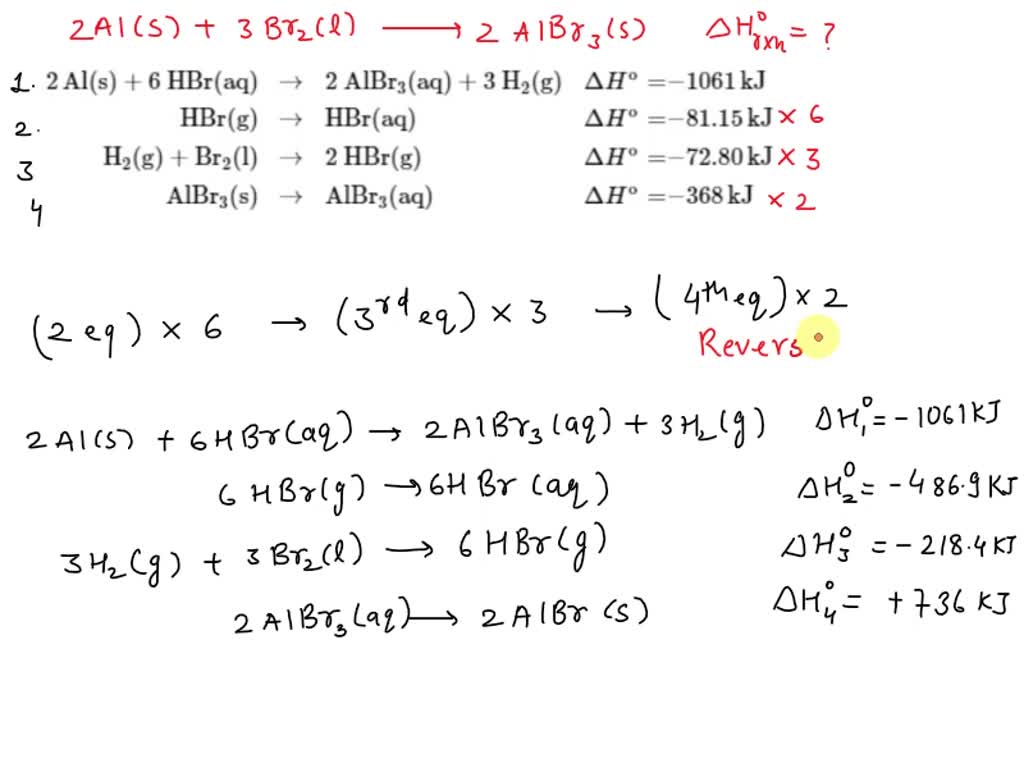 2Al(s) + 3Br₂(l) ⟶ 2AlBr₃(s) ΔH°rxn = ?
1. 2 Al(s) + 6 HBr(aq) → 2 AlBr₃(aq) + 3 H₂(g) ΔH° =−1061 kJ
2. HBr(g) → HBr(aq) ΔH° =−81.15 kJ × 6
3 H₂(g) + Br₂(l) → 2 HBr(g) ΔH° =−72.80 kJ × 3
4 AlBr₃(s) → AlBr₃(aq) ΔH° =−368 kJ × 2
(2 eq) × 6 → (3rd eq) × 3 → (4th eq) × 2
Revers
2Al(s) + 6HBr(aq) → 2AlBr₃(aq) + 3H₂(g) ΔH₁° = -1061 KJ
6HBr(g) → 6HBr(aq) ΔH₂° = -486.9 KJ
3H₂(g) + 3Br₂(l) → 6HBr(g) ΔH₃° = -218.4 KJ
2AlBr₃(aq) → 2AlBr(s) ΔH₄° = +736 KJ